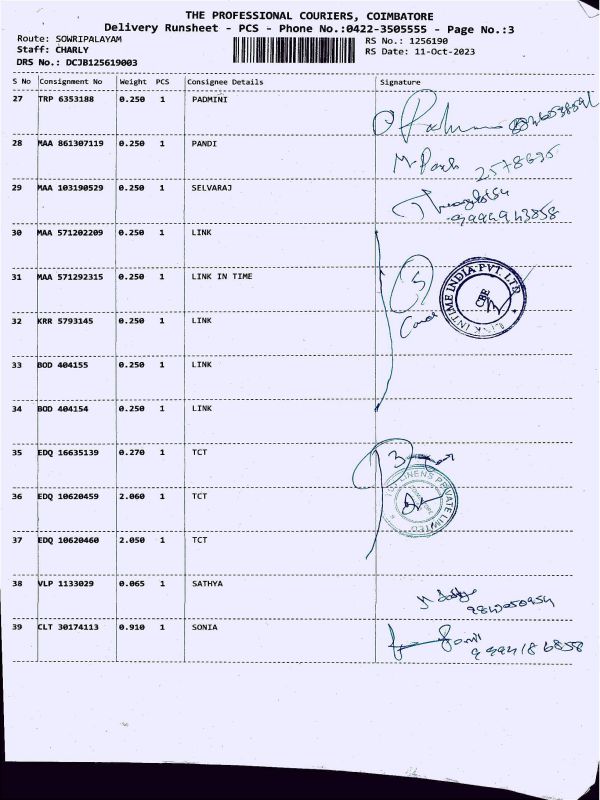 THE PROFESSIONAL COURIERS, COIMBATORE
Delivery Runsheet - PCS - Phone No.:0422-3505555 - Page No.:3
Route: SOWRIPALAYAM RS No.: 1256190
Staff: CHARLY RS Date: 11-Oct-2023
DRS No.: DCJB125619003
S No Consignment No Weight PCS Consignee Details Signature
27 TRP 6353188 0.250 1 PADMINI
28 MAA 861307119 0.250 1 PANDI
2578695
29 MAA 103190529 0.250 1 SELVARAJ
9994943858
30 MAA 571202209 0.250 1 LINK
31 MAA 571292315 0.250 1 LINK IN TIME
5
LINK INTIME INDIA PVT. LTD
CBE
32 KRR 5793145 0.250 1 LINK
33 BOD 404155 0.250 1 LINK
34 BOD 404154 0.250 1 LINK
35 EDQ 16635139 0.270 1 TCT
3
36 EDQ 10620459 2.060 1 TCT
PRIVATE LIMITED
37 EDQ 10620460 2.050 1 TCT
38 VLP 1133029 0.065 1 SATHYA
39 CLT 30174113 0.910 1 SONIA
9994186858